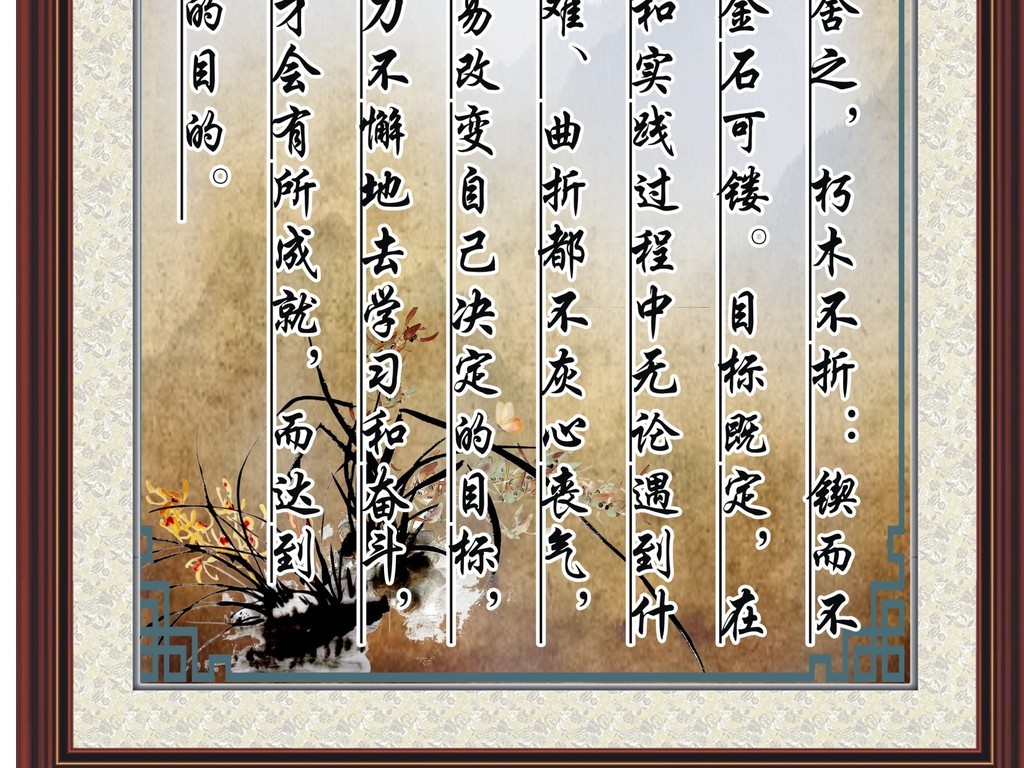 舍之，朽木不折：锲而不
金石可镂。目标既定，在
和实践过程中无论遇到什
难、曲折都不灰心丧气，
易改变自己决定的目标，
力不懈地去学习和奋斗，
才会有所成就，而达到
的目的。